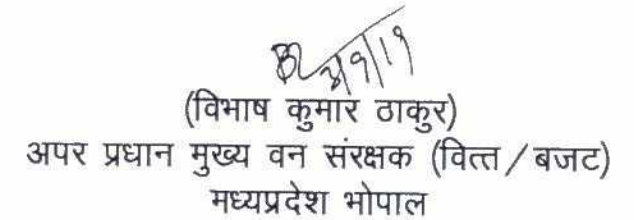 3/9/19
(विभाष कुमार ठाकुर)
अपर प्रधान मुख्य वन संरक्षक (वित्त/बजट)
मध्यप्रदेश भोपाल